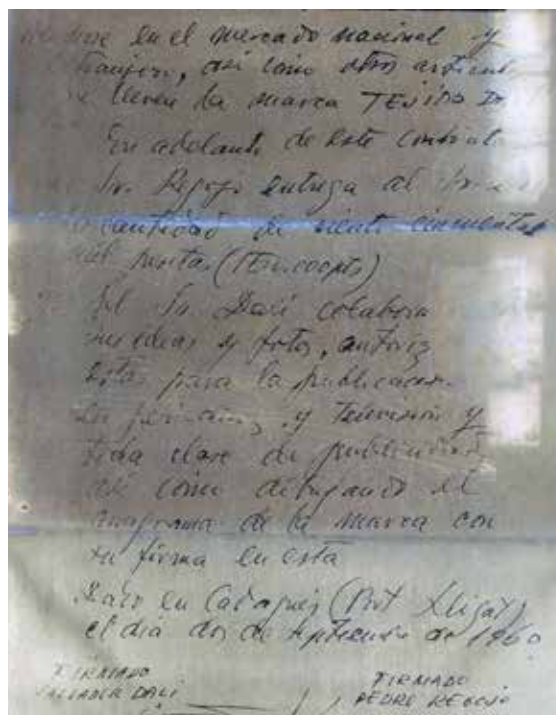 en el mercado nacional y
así como otros
lleven la marca TEJIDO
En adelanto de este contrato
Sr. Regojo entrega al
cantidad de ciento cincuenta
mil pesetas
El Sr. Dalí colabora
ideas y fotos,
para la publicación
y Televisión y
toda clase de publicidad
así como dibujando el
anagrama de la marca con
su firma en esta
en Cadaqués (Port Lligat)
el día dos de 1960
FIRMADO
SALVADOR DALI
FIRMADO
PEDRO REGOJO